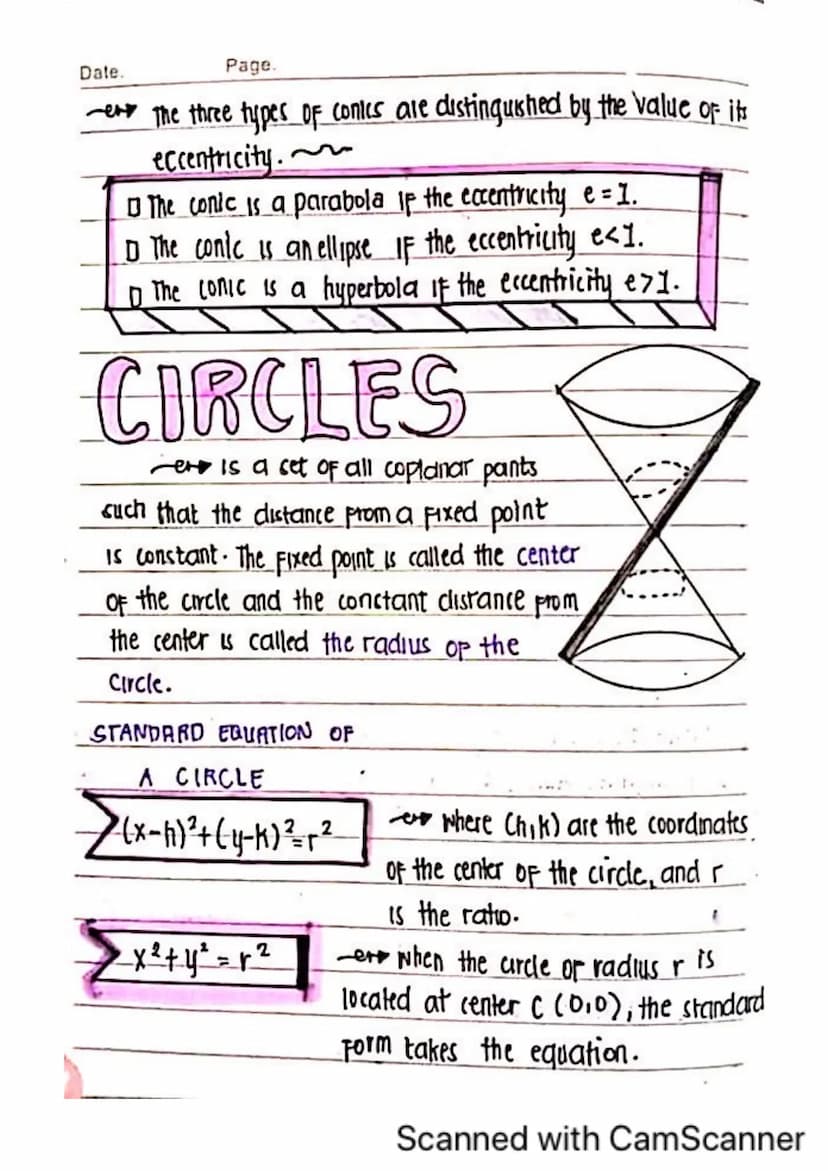 Date.
Page.
The three types of conics are distinguished by the value of its
eccentricity.
The conic is a parabola if the eccentricity e = 1.
The conic is an ellipse if the eccentricity e<1.
The conic is a hyperbola if the eccentricity e>1.
CIRCLES
is a set of all coplanar points
such that the distance from a fixed point
is constant. The fixed point is called the center
of the circle and the constant distance from
the center is called the radius of the
circle.
STANDARD EQUATION OF
A CIRCLE
(x-h)²+(y-k)²=r²
where (h,k) are the coordinates
of the center of the circle, and r
is the ratio.
x²+y²=r²
When the circle of radius r is
located at center C (0,0), the standard
form takes the equation.
Scanned with CamScanner